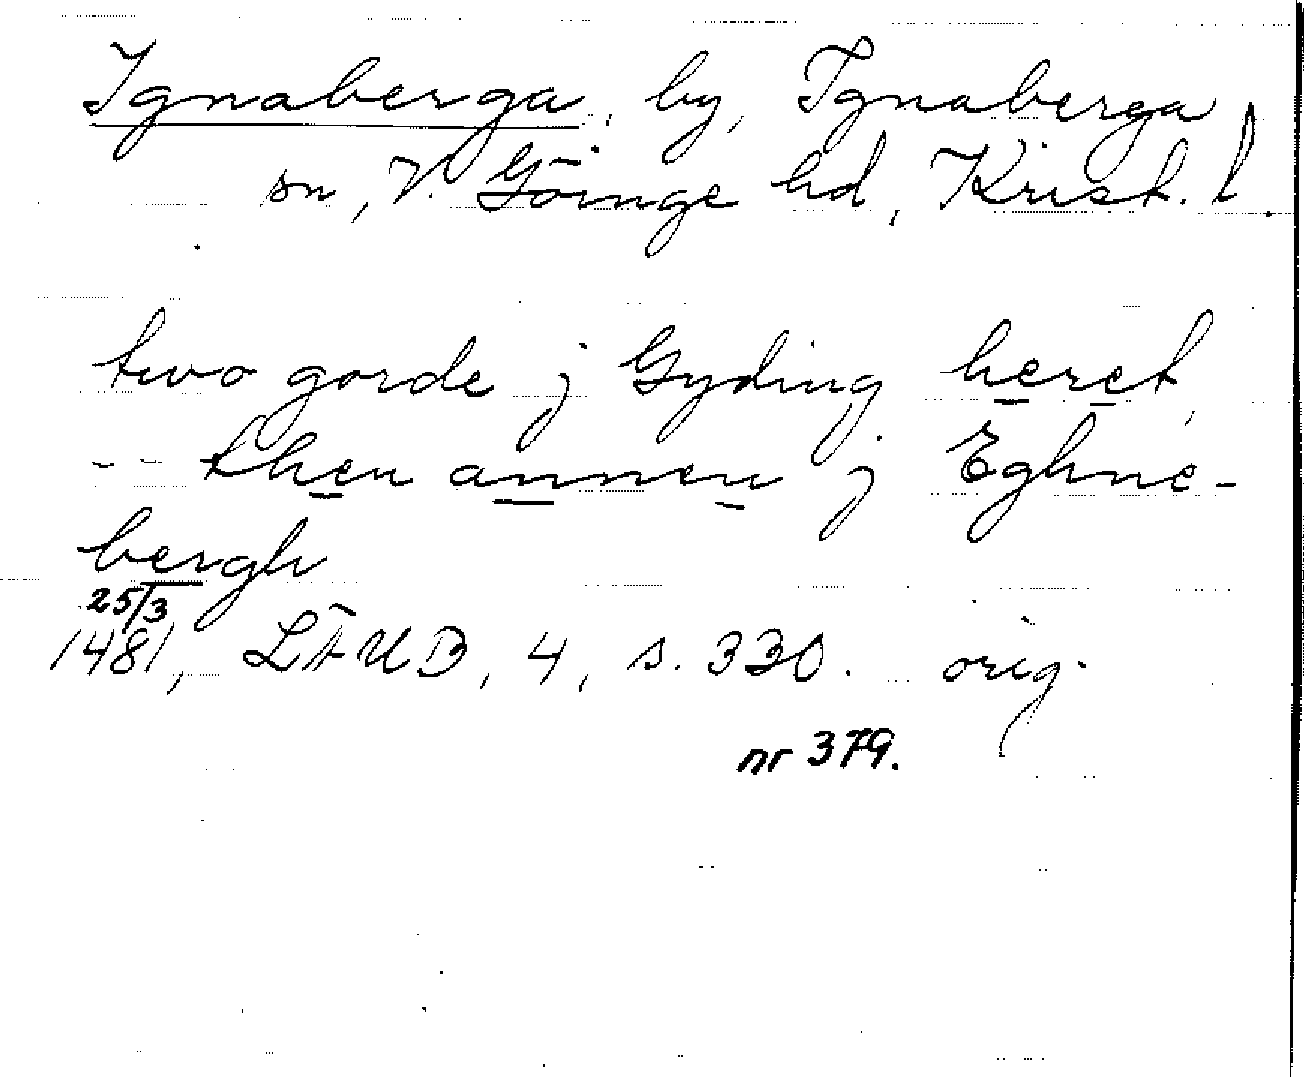 Ignaberga, by, Ignaberga
sn, V. Göinge hd, Krist. l.
two gorde j Gyding heret,
-- then annen j Eghne-
bergh
25/3
1481, LÄUB, 4, s. 330. orig.
nr 379.